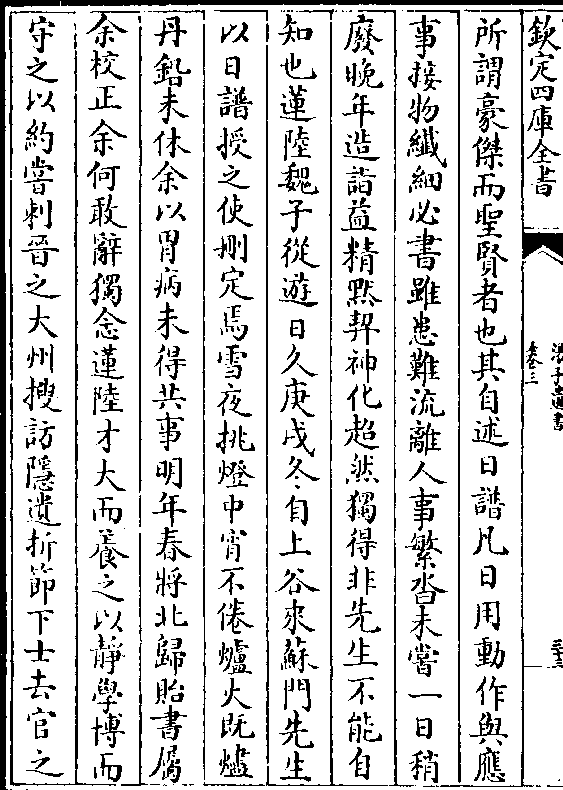 欽定四庫全書
湯子遺書
卷三
三十三
所謂豪傑而聖賢者也其自述日譜凡日用動作與應
事接物纎細必書雖患難流離人事繁沓未嘗一日稍
廢晚年造詣益精黙契神化超然獨得非先生不能自
知也蓮陸魏子從遊日久庚戌冬自上谷來蘇門先生
以日譜授之使刪定焉雪夜挑燈中宵不倦爐火既燼
丹鉛未休余以胃病未得共事明年春將北歸貽書屬
余校正余何敢辭獨念蓮陸才大而養之以靜學博而
守之以約嘗刺晉之大州搜訪隱遺折節下士去官之